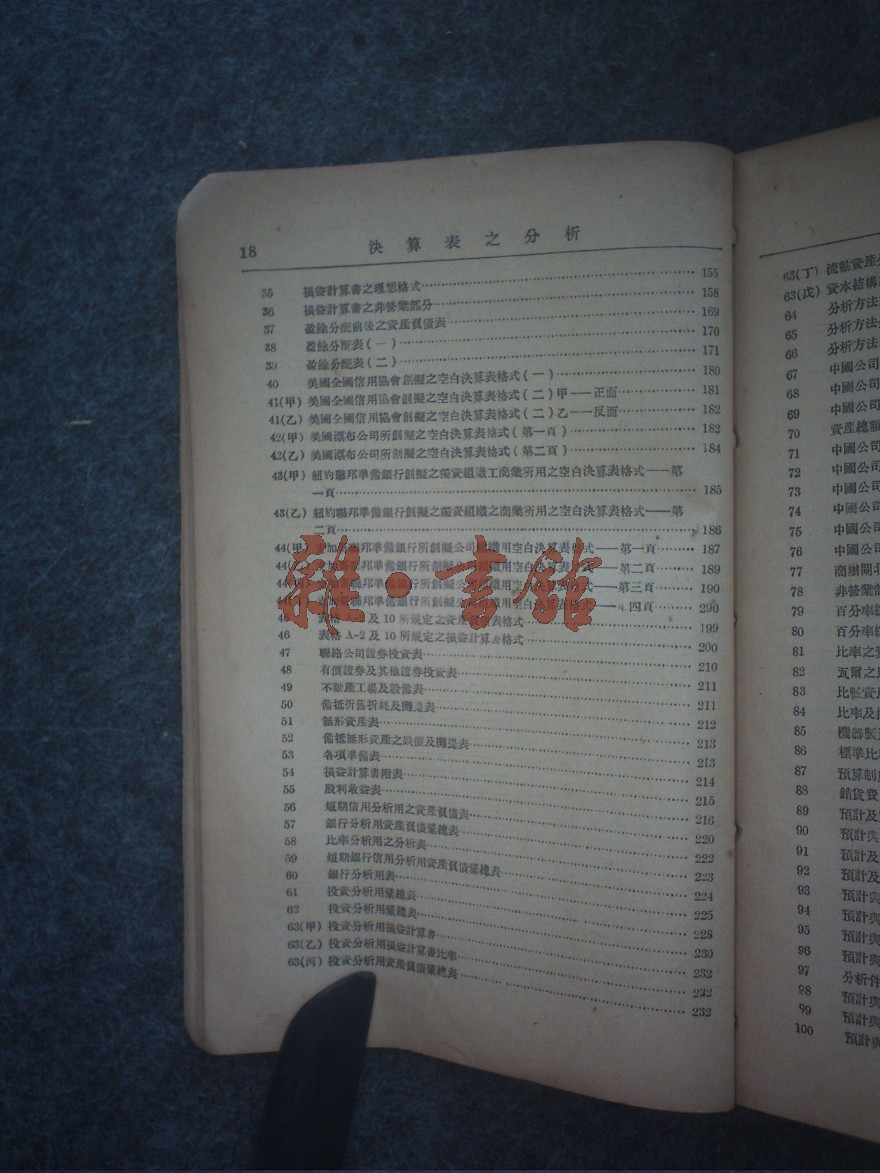 18 決算表之分析
35 損益計算書之理想格式 155
36 損益計算書之非營業部分 158
37 盈餘分配前後之資產負債表 169
38 盈餘分配表(一) 170
39 盈餘分配表(二) 171
40 美國全國信用協會創擬之空白決算表格式(一) 180
41(甲) 美國全國信用協會創擬之空白決算表格式(二)甲——正面 181
41(乙) 美國全國信用協會創擬之空白決算表格式(二)乙——反面 182
42(甲) 美國漂布公司所創擬之空白決算表格式(第一頁) 182
42(乙) 美國漂布公司所創擬之空白決算表格式(第二頁) 184
43(甲) 紐約聯邦準備銀行創擬之獨資組織工商業所用之空白決算表格式——第
一頁 185
43(乙) 紐約聯邦準備銀行創擬之獨資組織之商業所用之空白決算表格式——第
二頁 186
44(甲) 加哥聯邦準備銀行所創擬公司組織用空白決算表格式——第一頁 187
44 加哥聯邦準備銀行所創擬公司組織用空白決算表格式——第二頁 189
44 加哥聯邦準備銀行所創擬公司組織用空白決算表格式——第三頁 190
44 加哥聯邦準備銀行所創擬公司組織用空白決算表格式——四頁 290
雜·書館
45 表格 A-2 及 10 所規定之資產負債表格式 199
46 表格 A-2 及 10 所規定之損益計算書格式 200
47 聯絡公司證券投資表 210
48 有價證券及其他證券投資表 211
49 不動產工場及設備表 211
50 備抵折舊折耗及攤提表 212
51 無形資產表 213
52 備抵無形資產之跌價及攤提表 213
53 各項準備表 214
54 損益計算書附表 215
55 股利收益表 216
56 短期信用分析用之資產負債表 220
57 銀行分析用資產負債彙總表 222
58 比率分析用之分析表 223
59 短期銀行信用分析用資產負債彙總表 224
60 銀行分析用表 225
61 投資分析用彙總表 228
62 投資分析用彙總表 230
63(甲) 投資分析用損益計算書 232
63(乙) 投資分析用損益計算書比率 232
63(丙) 投資分析用資產負債彙總表 232
63(丁) 流動資產
63(戊) 資本結構
64 分析方法
65 分析方法
66 分析方法
67 中國公司
68 中國公司
69 中國公司
70 資產總額
71 中國公司
72 中國公司
73 中國公司
74 中國公司
75 中國公司
76 中國公司
77 商辦閘北
78 非營業部
79 百分率
80 百分率
81 比率之
82 瓦爾之比
83 比較資產
84 比率及
85 機器製
86 標準比
87 預算制
88 銷貨費
89 預計及
90 預計與
91 預計及
92 預計及
93 預計與
94 預計與
95 預計與
96 預計與
97 分析件
98 預計與
99 預計與
100 預計與